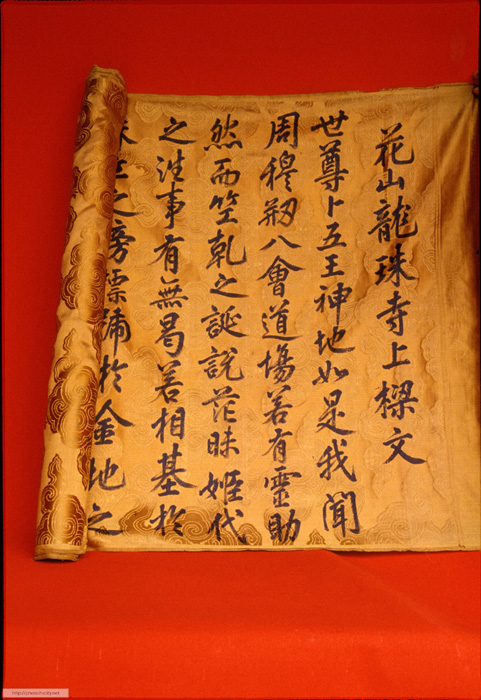 花山龍珠寺上樑文
世尊卜五王神地如是我聞
周穆刱八會道場若有靈助
然而竺乾之誕說茫昧姬代
之徃事有無曷若相基於
之旁標號於金地之